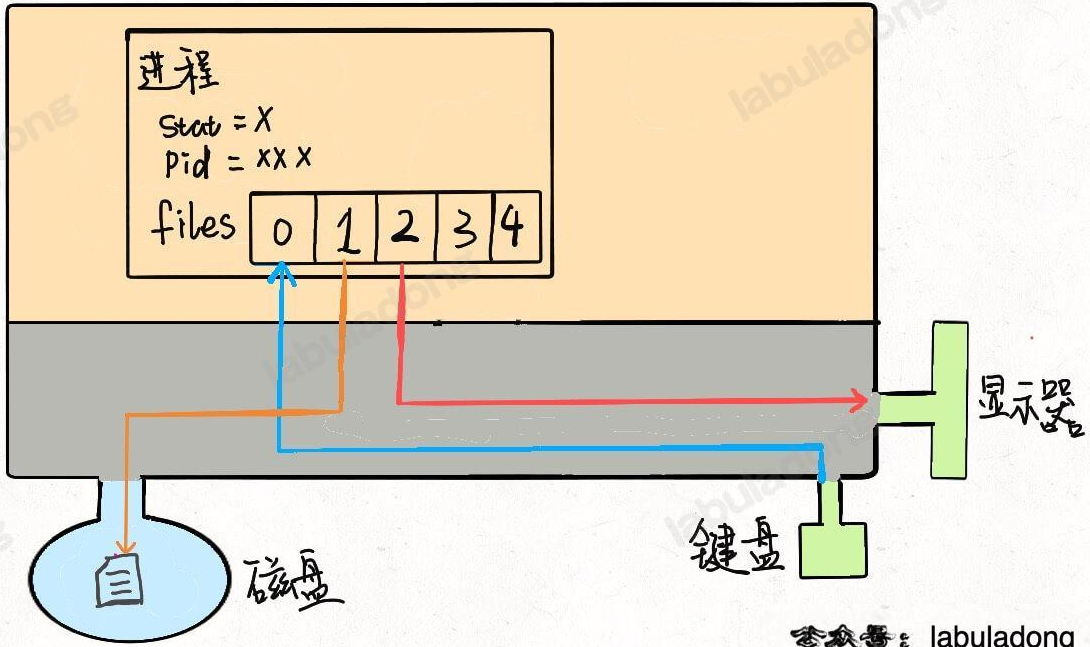 进程
Stat = X
Pid = XXX
files 0 1 2 3 4
显示器
键盘
磁盘
公众号：labuladong
labuladong
labuladong
labuladong